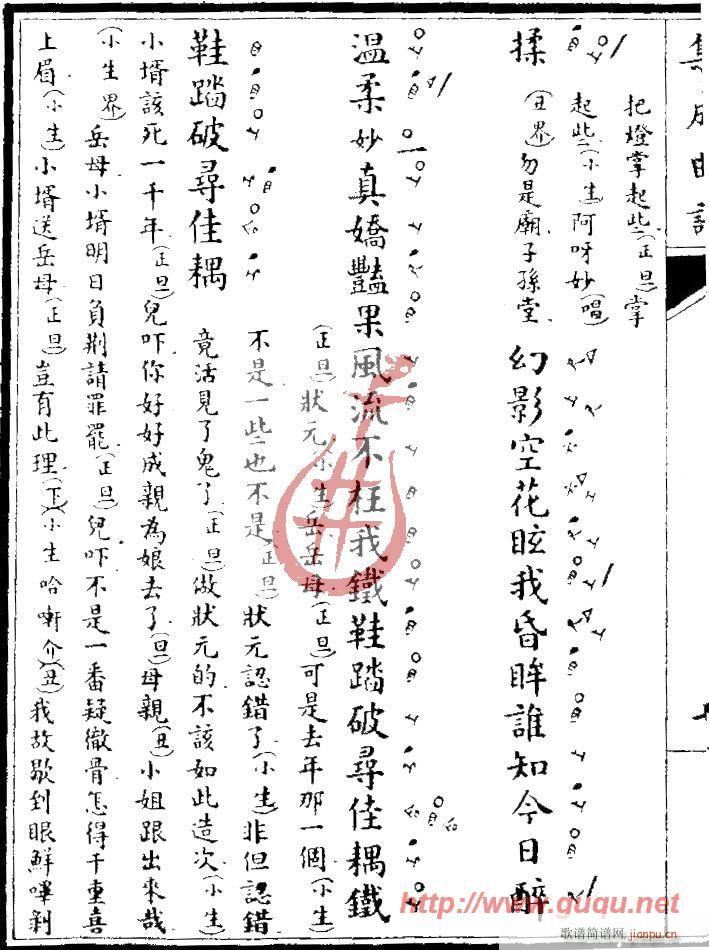 集成曲譜
把燈掌起些(正旦)掌
起些(小生)阿呀妙(唱)
幻影空花眩我昏眸誰知今日醉
(丑界)勿是廟子孫堂
揉
溫柔妙真嬌豔果風流不枉我鐵鞋踏破尋佳耦鐵
(正旦)狀元(小生)岳岳母(正旦)可是去年那一個(小生)
不是一些也不是(正旦)狀元認錯了(小生)非但認錯
鞋踏破尋佳耦
竟活見了鬼了(正旦)做狀元的不該如此造次(小生)
小壻該死一千年(正旦)兒吓你好好成親為娘去了(旦)母親(丑)小姐跟出來哉
(小生界)岳母小壻明日負荆請罪罷(正旦)兒吓不是一番疑徹骨怎得千重喜
上眉(小生)小壻送岳母(正旦)豈有此理(下)(小生哈嘶介)(丑)我故歇到眼鮮嗶剝
http://www.guqu.net
歌谱简谱网
jianpu.cn